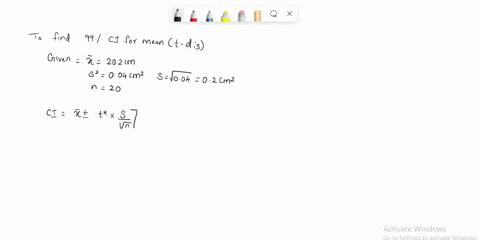 To find 99% CI for mean (t-dis)
Given = x̄ = 20.2cm
S² = 0.04cm² S = √0.04 = 0.2cm²
n = 20
CI = x̄ ± t* × S/√n
Activate Windows
Go to Settings to activate Windows.